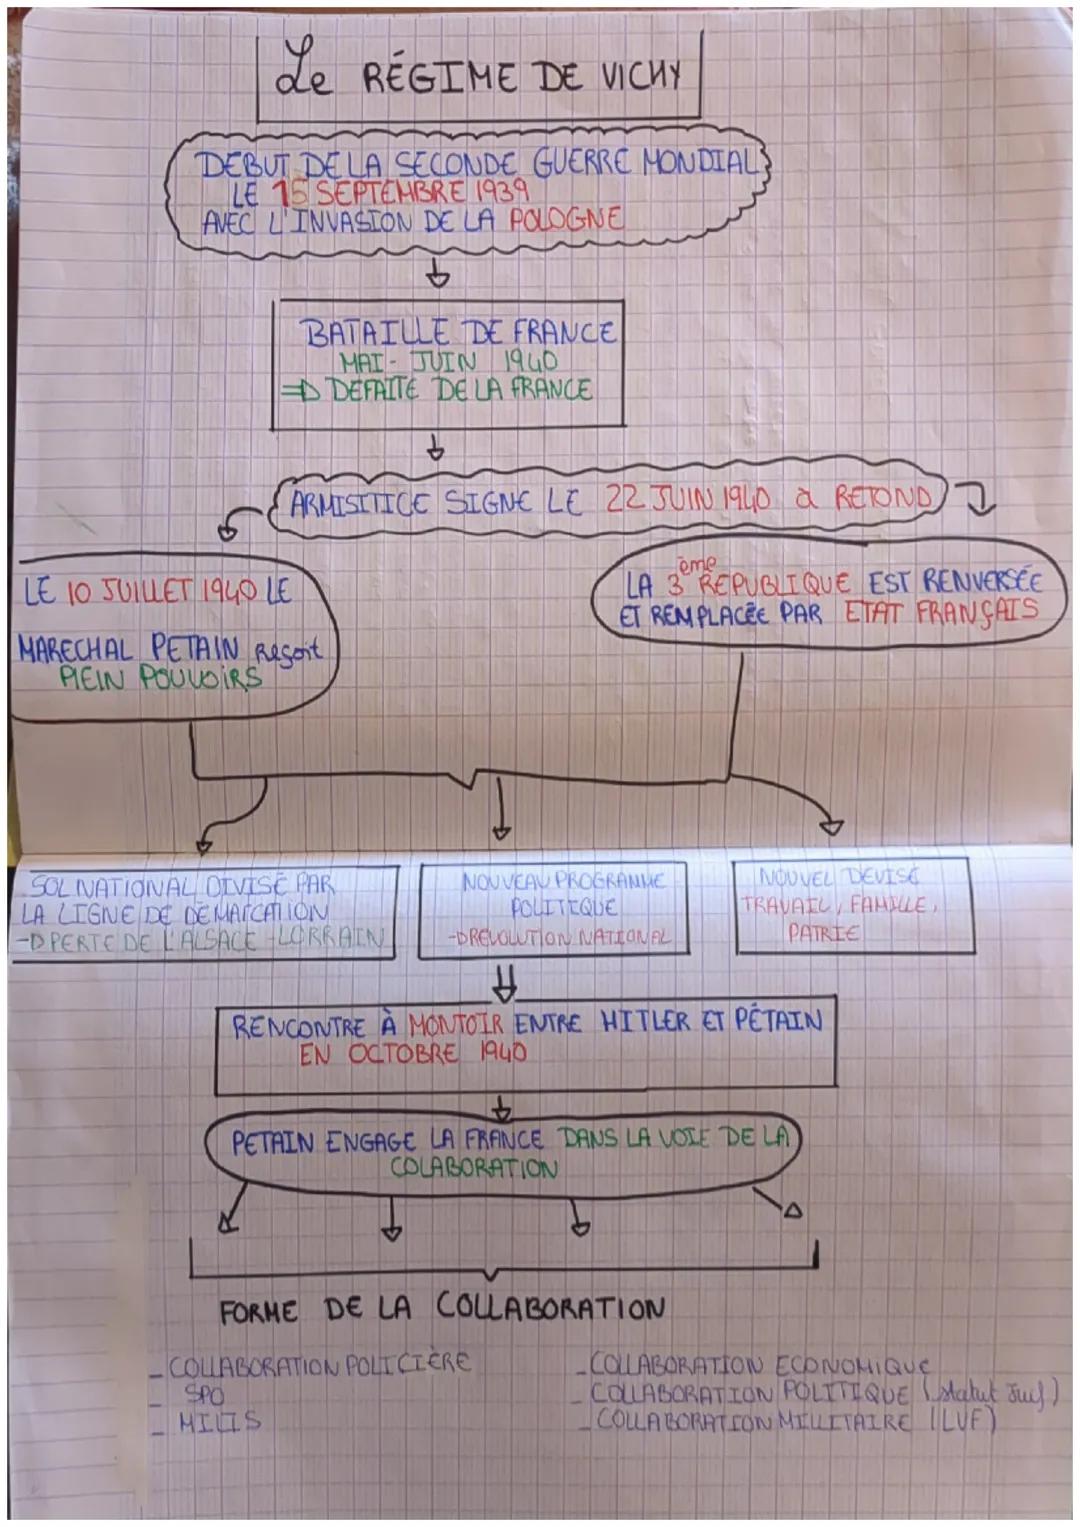 Le RÉGIME DE VICHY
DEBUT DE LA SECONDE GUERRE MONDIAL
LE 15 SEPTEMBRE 1939
AVEC L'INVASION DE LA POLOGNE
BATAILLE DE FRANCE
MAI - JUIN 1940
=> DEFAITE DE LA FRANCE
ARMISITICE SIGNE LE 22 JUIN 1940 a RETOND
LE 10 JUILLET 1940 LE
MARECHAL PETAIN Reçoit
PLEIN POUVOIRS
LA 3ème REPUBLIQUE EST RENVERSÉE
ET REMPLACÉE PAR ETAT FRANÇAIS
SOL NATIONAL DIVISÉ PAR
LA LIGNE DE DEMARCATION
-> PERTE DE L'ALSACE-LORRAIN
NOUVEAU PROGRAMME
POLITIQUE
-> REVOLUTION NATIONAL
NOUVEL DEVISE
TRAVAIL, FAMILLE,
PATRIE
RENCONTRE À MONTOIR ENTRE HITLER ET PÉTAIN
EN OCTOBRE 1940
PETAIN ENGAGE LA FRANCE DANS LA VOIE DE LA
COLABORATION
FORME DE LA COLLABORATION
- COLLABORATION POLICIÈRE
- SPO
- MILIS
- COLLABORATION ECONOMIQUE
- COLLABORATION POLITIQUE (statut Juif)
- COLLABORATION MILITAIRE (LVF)